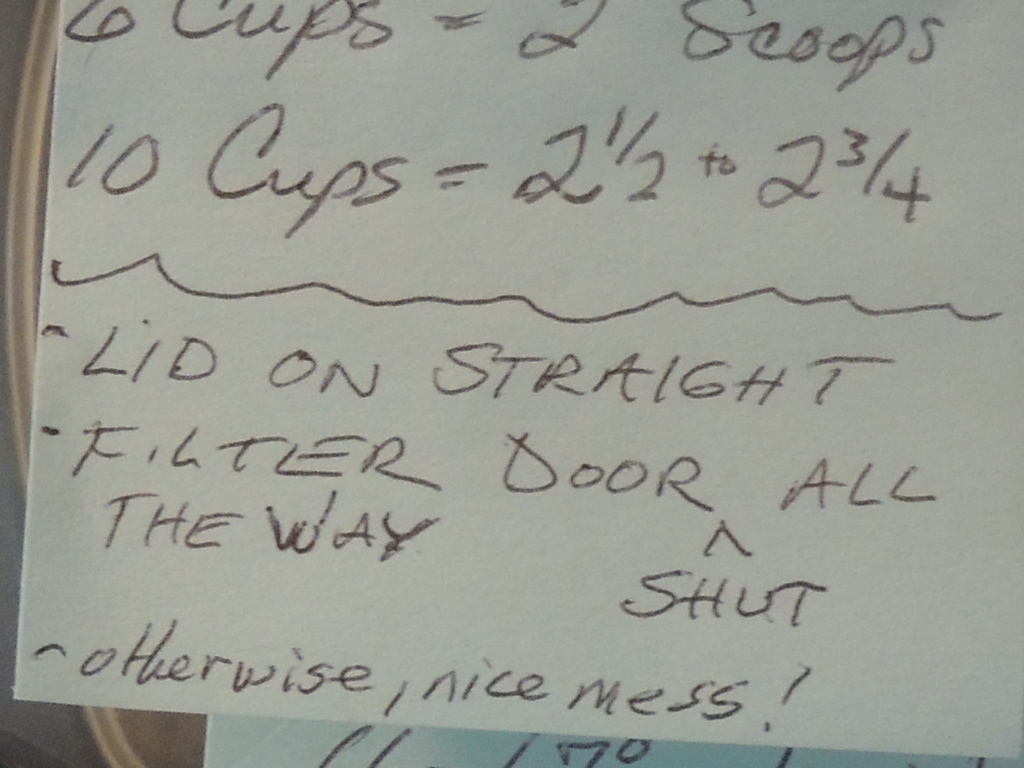 6 Cups = 2 Scoops
10 Cups = 2 1/2 to 2 3/4
- LID ON STRAIGHT
- FILTER DOOR ALL
THE WAY ^
SHUT
- otherwise, nice mess!